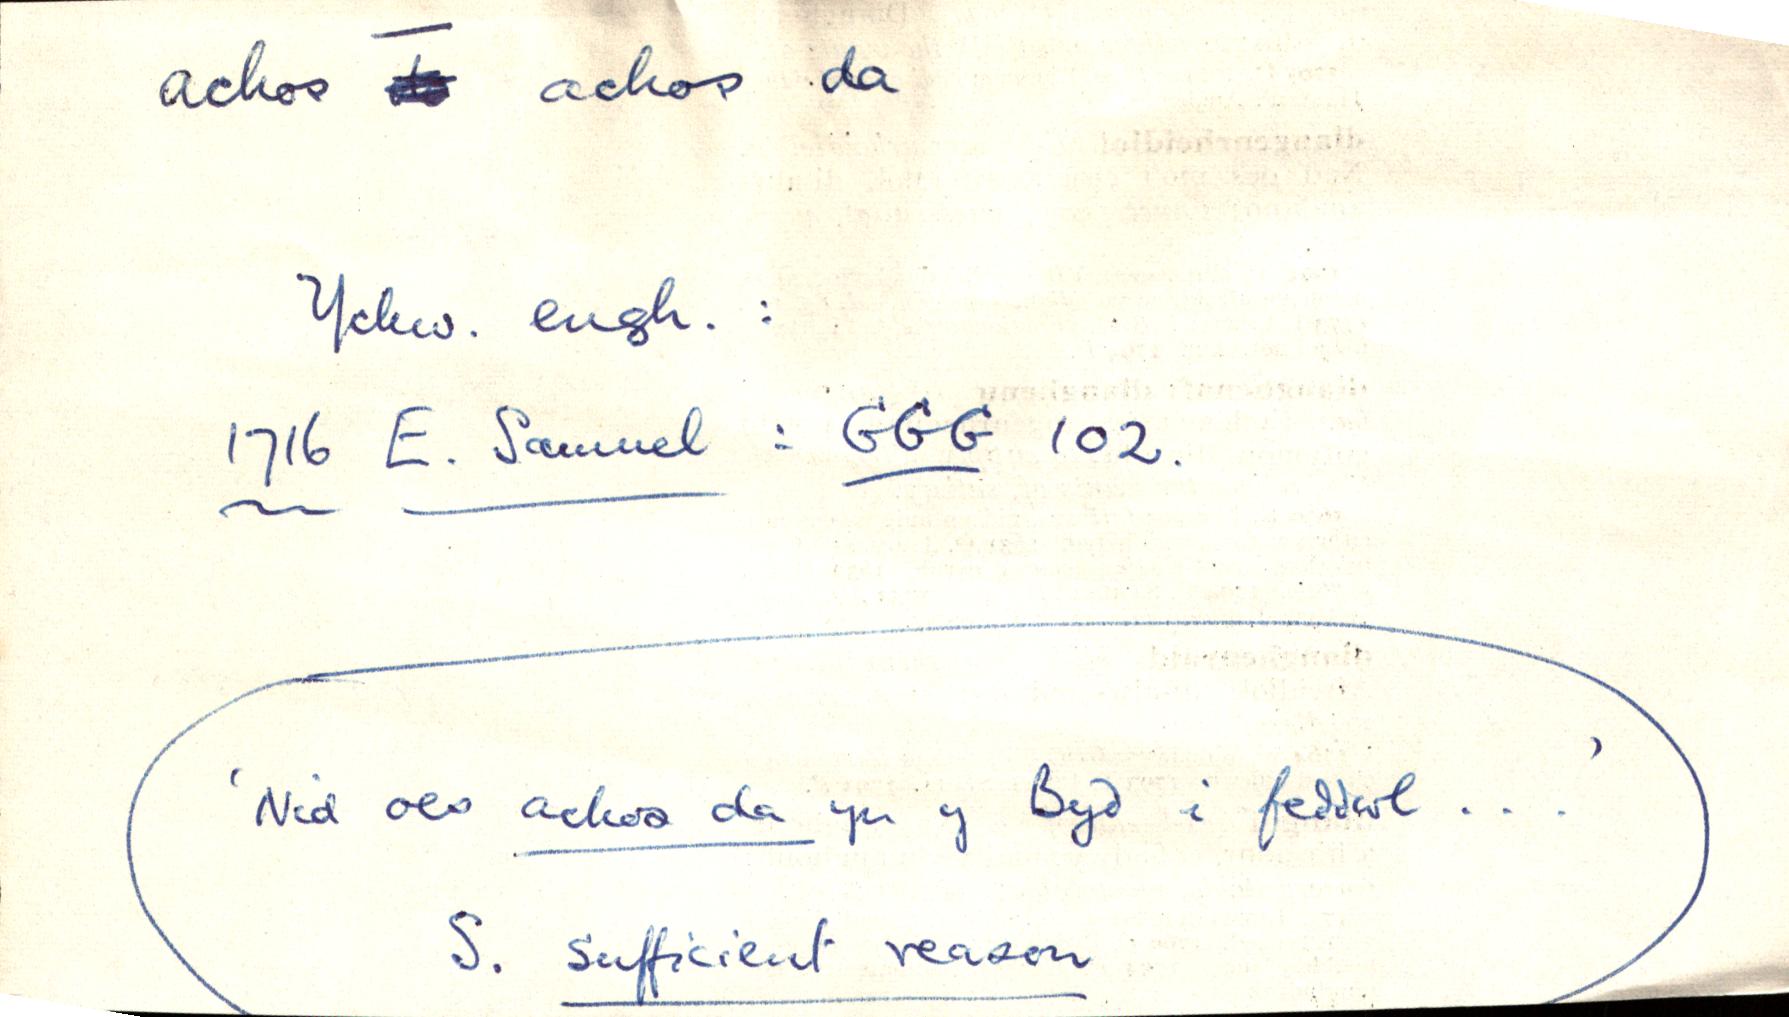 achos achos da
Ychw. engh. :
1716 E. Samuel : GGG 102.
'Nid oes achos da yn y Byd i feddwl . . . .'
S. sufficient reason